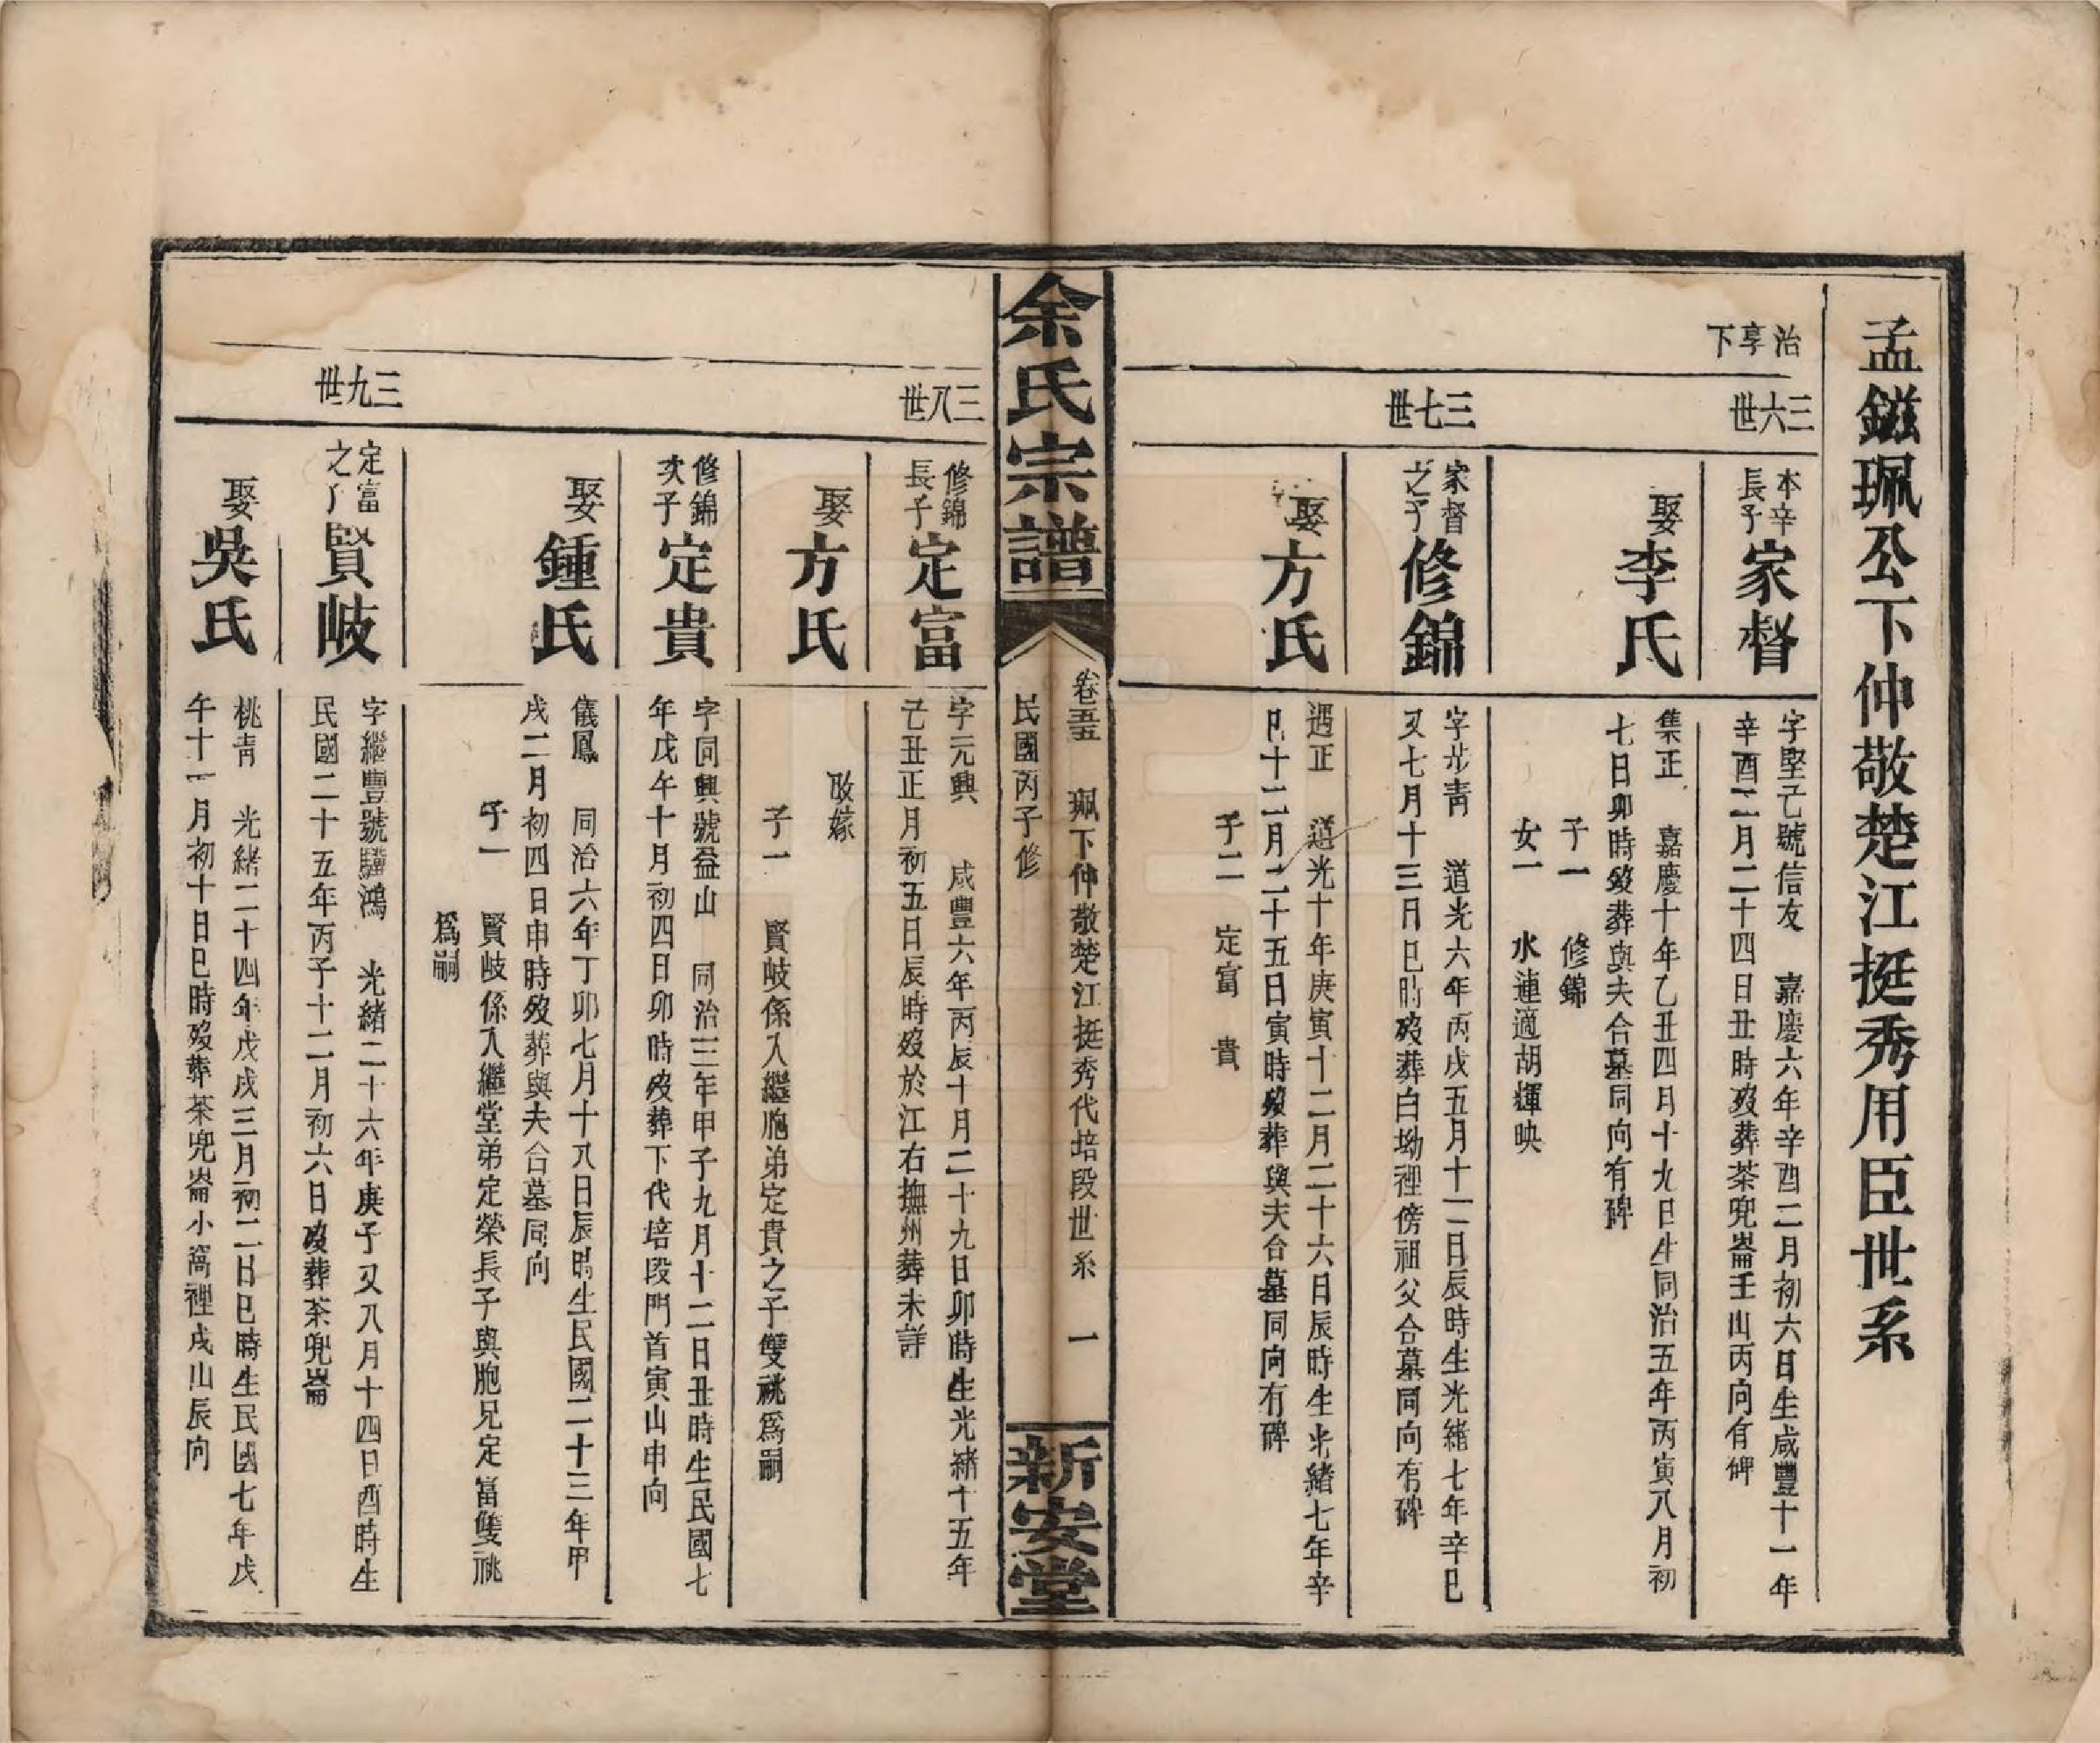 孟鎡珮公下仲敬楚江挺秀用臣世系
治享下
三六世
本辛長子 家督
字堅乙號信友 嘉慶六年辛酉二月初六日生咸豐十一年
辛酉二月二十四日丑時歿葬茶兜崙壬山丙向有碑
娶 李氏
集正 嘉慶十年乙丑四月十九日生同治五年丙寅八月初
七日卯時歿葬與夫合墓同向有碑
子一 修錦
女一 水連適胡揮映
三七世
家督之子 修錦
字光青 道光六年丙戌五月十一日辰時生光緒七年辛巳
又七月十三日巳時歿葬白坳裡傍祖父合墓同向有碑
娶 方氏
遇正 道光十年庚寅十二月二十六日辰時生光緒七年辛
巳十二月二十五日寅時歿葬與夫合墓同向有碑
子二 定富 貴
余氏宗譜
卷五 珮下仲敬楚江挺秀代培段世系 一
民國丙子修
新安堂
三八世
修錦長子 定富
字元興 咸豐六年丙辰十月二十九日卯時生光緒十五年
乙丑正月初五日辰時歿於江右撫州葬未詳
娶 方氏
改嫁
子一 賢岐係入繼胞弟定貴之子雙祧爲嗣
修錦次子 定貴
字同興號益山 同治三年甲子九月十二日丑時生民國七
年戊午十月初四日卯時歿葬下代培段門首寅山申向
娶 鍾氏
儀鳳 同治六年丁卯七月十八日辰時生民國二十三年甲
戌二月初四日申時歿葬與夫合墓同向
子一 賢岐係入繼堂弟定榮長子與胞兄定富雙祧
爲嗣
三九世
定富之子 賢岐
字繼豐號驥鴻 光緒二十六年庚子又八月十四日酉時生
民國二十五年丙子十二月初六日歿葬茶兜崙
娶 吳氏
桃青 光緒二十四年戊戌三月初二日巳時生民國七年戊
午十一月初十日巳時歿葬茶兜崙小窩裡戌山辰向